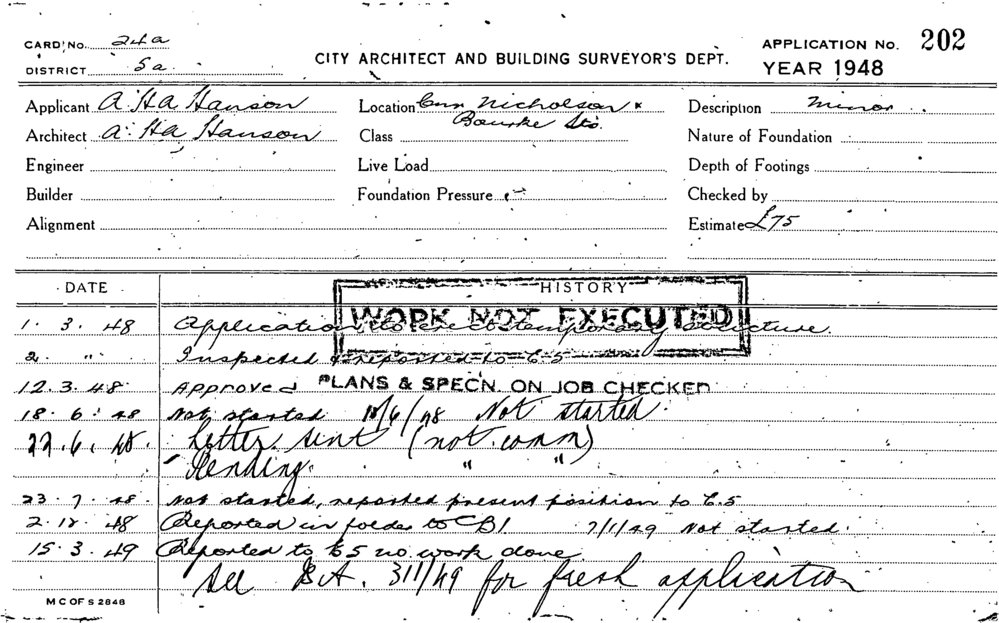 CARD No. 24a
DISTRICT 5a
CITY ARCHITECT AND BUILDING SURVEYOR'S DEPT.
APPLICATION No. 202
YEAR 1948
Applicant A HA Hanson
Architect A. HA Hanson
Engineer
Builder
Alignment
Location Cnr Nicholson &
Bourke Sts.
Class
Live Load
Foundation Pressure
Description Minor
Nature of Foundation
Depth of Footings
Checked by
Estimate £75
DATE HISTORY
WORK NOT EXECUTED
1. 3. 48 Application to erect temporary structure.
2. " Inspected & reported to C.5
12.3.48 Approved PLANS & SPEC'N. ON JOB CHECKED
18. 6. 48 Not started 18/6/48 Not started.
22.6.48. Letter sent (not. comm)
Pending. " "
23. 7. 48 Not started, reported present position to C.5
48 Reported in folder to CB1. 7/1/49 Not started.
15. 3. 49 Reported to C5 no work done
See B.A. 311/49 for fresh application
M C OF S 2848